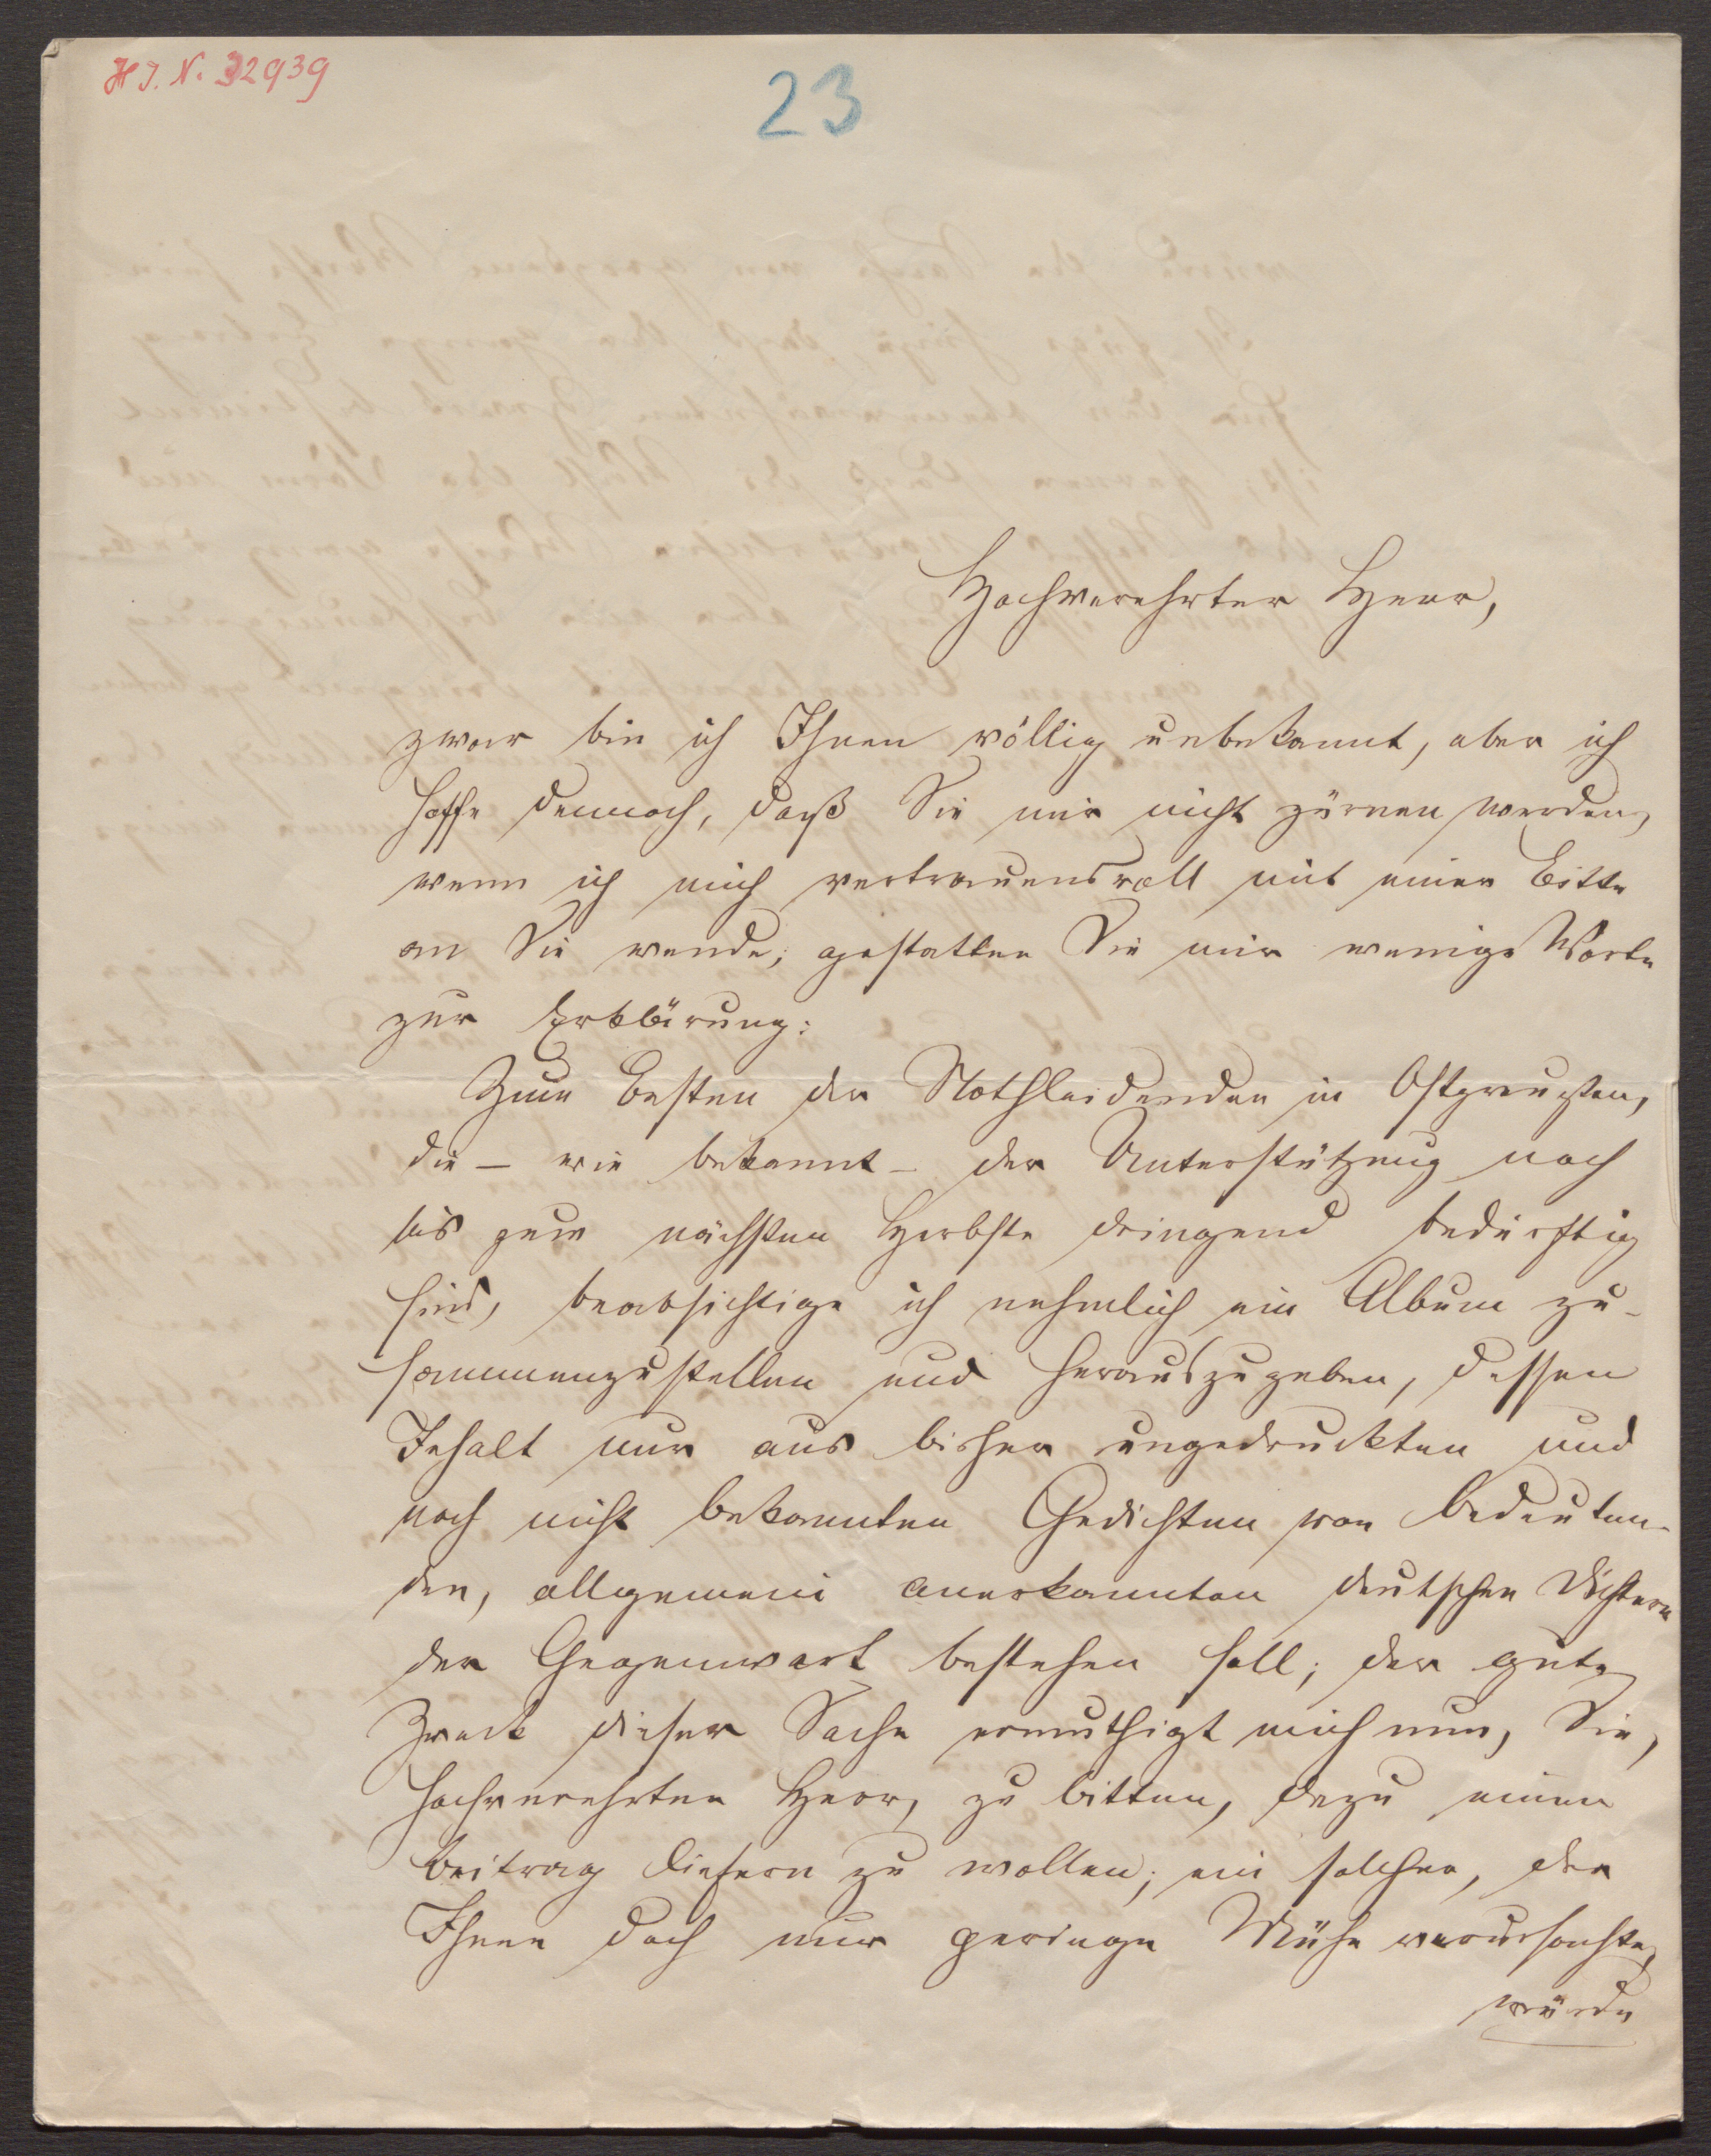 H I. N. 32939
23
Hochverehrter Herr,
zwar bin ich Ihnen völlig unbekannt, aber ich
hoffe dennoch, daß Sie mir nicht zürnen werden,
wenn ich mich vertrauensvoll mit einer Bitte
an Sie wende; gestatten Sie mir wenige Worte
zur Erklärung:
Zum Besten der Nothleidenden in Ostpreußen,
die – wie bekannt – der Unterstützung noch
bis zum nächsten Herbste dringend bedürftig
sind, beabsichtige ich nehmlich ein Album zu-
sammenzustellen und herauszugeben, dessen
Inhalt nur aus bisher ungedruckten und
noch nicht bekannten Gedichten von bedeuten-
den, allgemein anerkannten deutschen Dichtern
der Gegenwart bestehen soll; der gute
Zweck dieser Sache ermuthigt mich nun, Sie,
hochverehrter Herr, zu bitten, dazu einen
Beitrag liefern zu wollen; ein solcher, der
Ihnen doch nur geringe Mühe verursachte,
würde